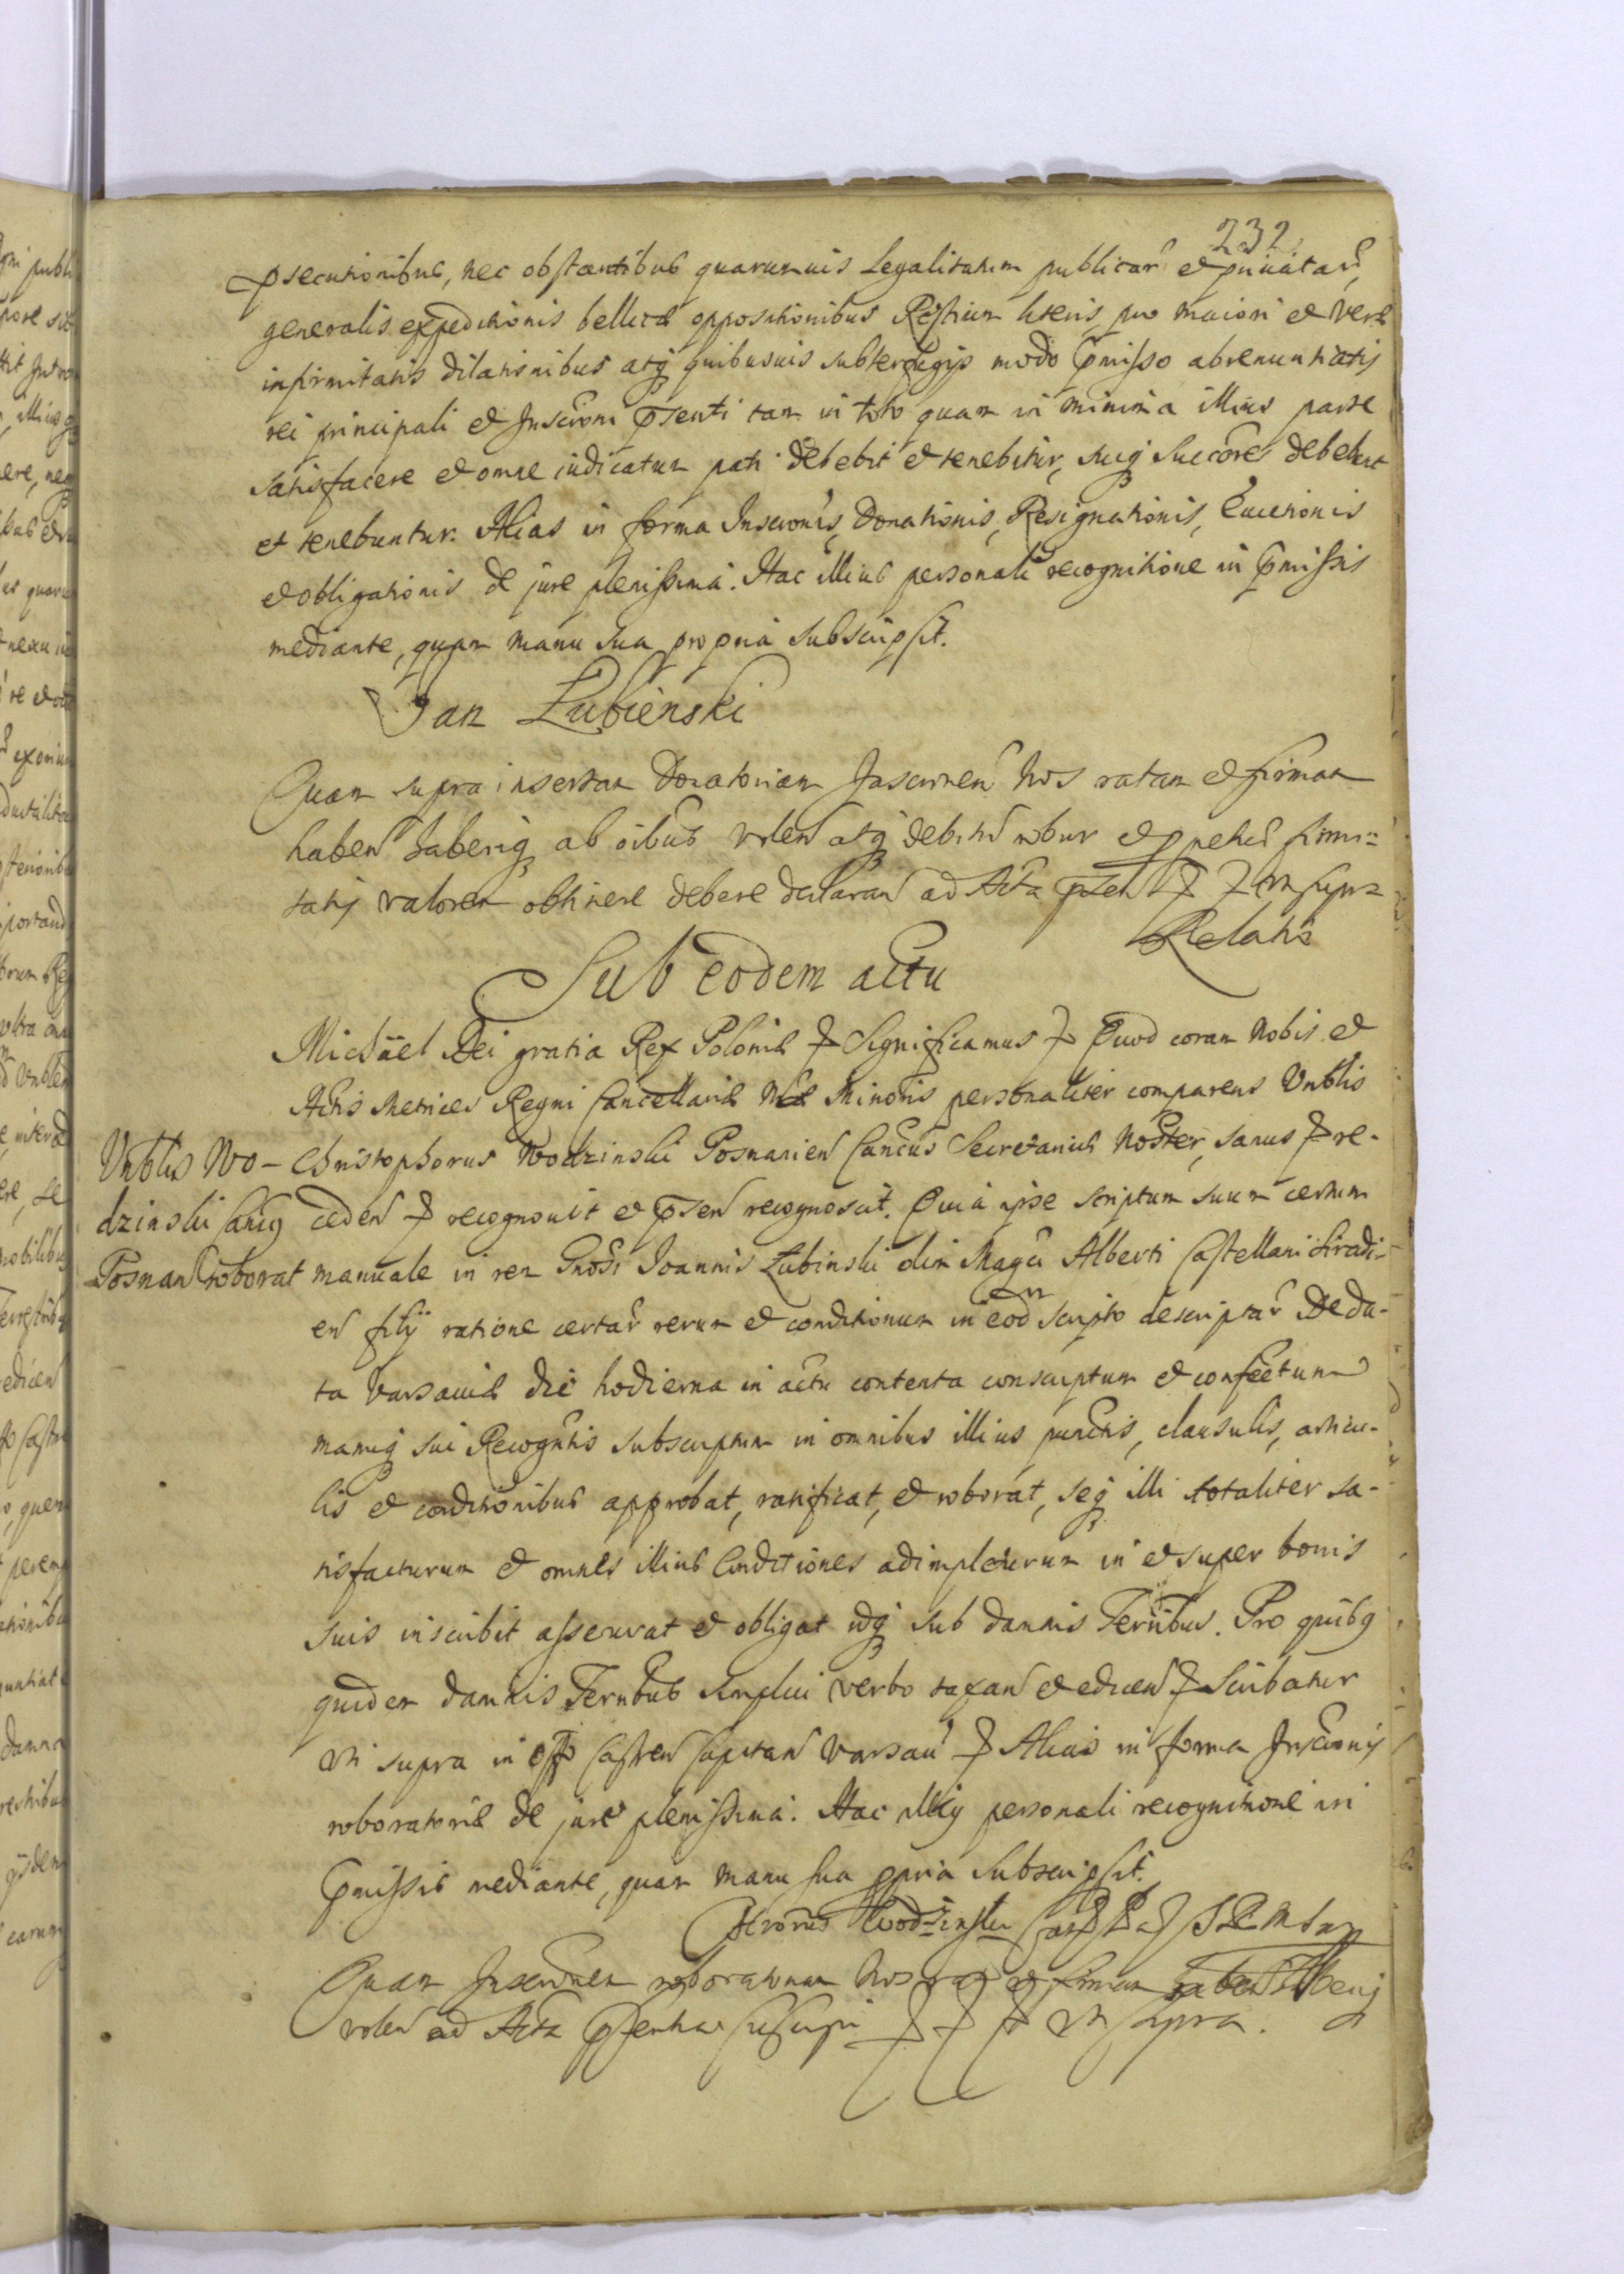 232
psecutionibus, nec obstantibus quarumuis Legalitatum publicar et priuatar,
generalis expeditionis bellicæ oppositionibus Rescrium literis, pro maiori et vera
infirmitatis dilationibus atq quibusuis subterfugijs modo pmisso abrenuntiatis
rei principali et Inscrioni psenti tam in toto quam in minima illius parte
satisfacere et omne iudicatum pati debebit et tenebitur, suiq succores debebunt
et tenebuntur. Alias in forma Inscronis, Donationis, Resignationis, Euictionis
et obligationis de jure plenissima. Hac illius personali recognitione in pmissis
mediante, quam manu sua propria subscripsit.
Jan Łubienski
Quam supra insertam Donatoriam Inscrnem Nos ratam et firmam
haben haberiq ab oibus volen atq debitu robur et ppetuâ firmi=
tatis valorem obtinere debere declaran ad Acta psen ut supra
Relatio
Sub eodem actu
Michäel Dei gratia Rex Poloniæ Significamus Quod coram Nobis et
Actis Metrices Regni Cancellariæ Minoris personaliter comparens Vrblis
Christophorus Wodzinski Posnanien Cancus Secretarius Noster, sanus re-
ceden recognouit et psen recognoscit. Quia ipse scriptum suum certum
manuale in rem Gnosi Joannis Łubinski olim Magci Alberti Castellani Siradi-
en filij ratione certar rerum et conditionum in eodem scripto descriptar De da-
ta Varsauiæ die hodierna in actu contenta conscriptum et confectum
manuq sui Recogntis subscriptum in omnibus illius punctis, clausulis, articu-
lis et conditionibus approbat, ratificat, et roborat, seq illi totaliter sa-
tisfacturum et omnes illius Conditiones adimpleturum in et super bonis
suis inscribit asseruat et obligat idq sub damnis Terribus. Pro quibq
quidem damnis Terribus simplici verbo taxan et edicen Scribatur
vti supra in offo Castren Capitan Varsau Alias in forma Inscrionis
roboratoriæ de jure plenissima. Hac illiq personali recognitione in
pmissis mediante, quam manu sua ppria subscripsit.
Vrblis Wo-
dzinski Cancq
Posnan roborat
Wodzinski
Quam Inscrnem roboratoriam Nos rat et firmam haben haberiq
volen ad Acta psentia suscepi vt supra.